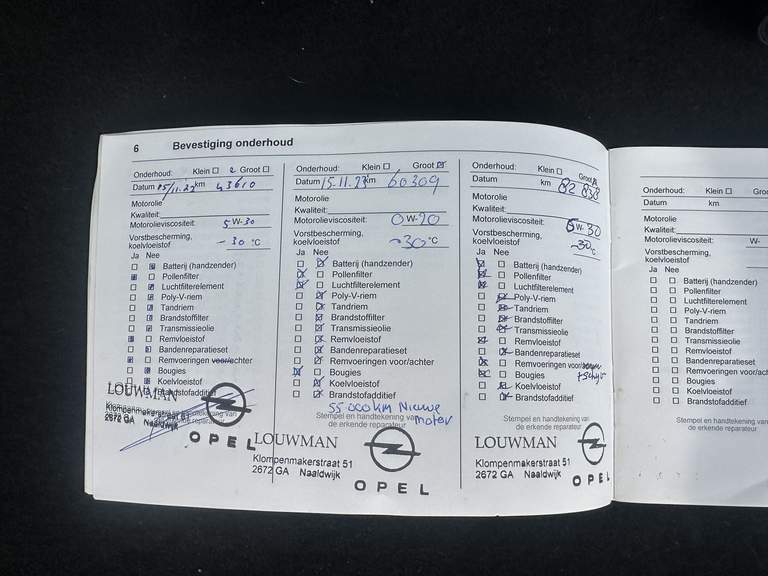 6 Bevestiging onderhoud
Onderhoud: Klein Groot
Datum 05/11.22 km 43610
Motorolie
Kwaliteit:
Motorolieviscositeit: 5 W-30
Vorstbescherming,
koelvloeistof -30 °C
Ja Nee
Batterij (handzender)
Pollenfilter
Luchtfilterelement
Poly-V-riem
Tandriem
Brandstoffilter
Transmissieolie
Remvloeistof
Bandenreparatieset
Remvoeringen voor/achter
Bougies
Koelvloeistof
Brandstofadditief
LOUWMAN
Klompenmakerstraat 51
2672 GA Naaldwijk
OPEL
Onderhoud: Klein Groot
Datum 15.11.23 km 60309
Motorolie
Kwaliteit:
Motorolieviscositeit: 0 W-20
Vorstbescherming,
koelvloeistof -30 °C
Ja Nee
Batterij (handzender)
Pollenfilter
Luchtfilterelement
Poly-V-riem
Tandriem
Brandstoffilter
Transmissieolie
Remvloeistof
Bandenreparatieset
Remvoeringen voor/achter
Bougies
Koelvloeistof
Brandstofadditief
55 000 km Nieuwe
motor
Stempel en handtekening van
de erkende reparateur
LOUWMAN
Klompenmakerstraat 51
2672 GA Naaldwijk
OPEL
Onderhoud: Klein Groot
Datum km 82 838
Motorolie
Kwaliteit:
Motorolieviscositeit: 5 W-30
Vorstbescherming,
koelvloeistof -30 °C
Ja Nee
Batterij (handzender)
Pollenfilter
Luchtfilterelement
Poly-V-riem
Tandriem
Brandstoffilter
Transmissieolie
Remvloeistof
Bandenreparatieset
Remvoeringen voor/
Bougies
Koelvloeistof
Brandstofadditief
Stempel en handtekening van
de erkende reparateur
LOUWMAN
Klompenmakerstraat 51
2672 GA Naaldwijk
OPEL
Onderhoud: Klein Groo
Datum km
Motorolie
Kwaliteit:
Motorolieviscositeit: W-
Vorstbescherming,
koelvloeistof
Ja Nee
Batterij (handzender)
Pollenfilter
Luchtfilterelement
Poly-V-riem
Tandriem
Brandstoffilter
Transmissieolie
Remvloeistof
Bandenreparatieset
Remvoeringen voor/ac
Bougies
Koelvloeistof
Brandstofadditief
Stempel en handtekening van
de erkende reparateur